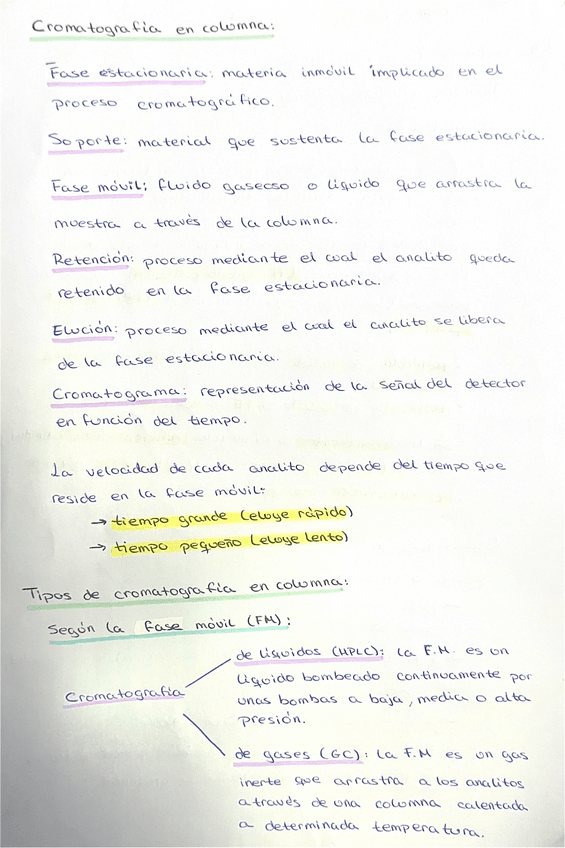 Cromatografía en columna:
Fase estacionaria: materia inmóvil implicado en el
proceso cromatográfico.
Soporte: material que sustenta la fase estacionaria.
Fase móvil: fluido gaseoso o líquido que arrastra la
muestra a través de la columna.
Retención: proceso mediante el cual el analito queda
retenido en la fase estacionaria.
Elución: proceso mediante el cual el analito se libera
de la fase estacionaria.
Cromatograma: representación de la señal del detector
en función del tiempo.
La velocidad de cada analito depende del tiempo que
reside en la fase móvil:
→ tiempo grande (eluye rápido)
→ tiempo pequeño (eluye lento)
Tipos de cromatografía en columna:
Según la fase móvil (FM):
Cromatografía
de líquidos (HPLC): la F.M. es un
líquido bombeado continuamente por
unas bombas a baja, media o alta
presión.
de gases (GC): la F.M es un gas
inerte que arrastra a los analitos
a través de una columna calentada
a determinada temperatura.